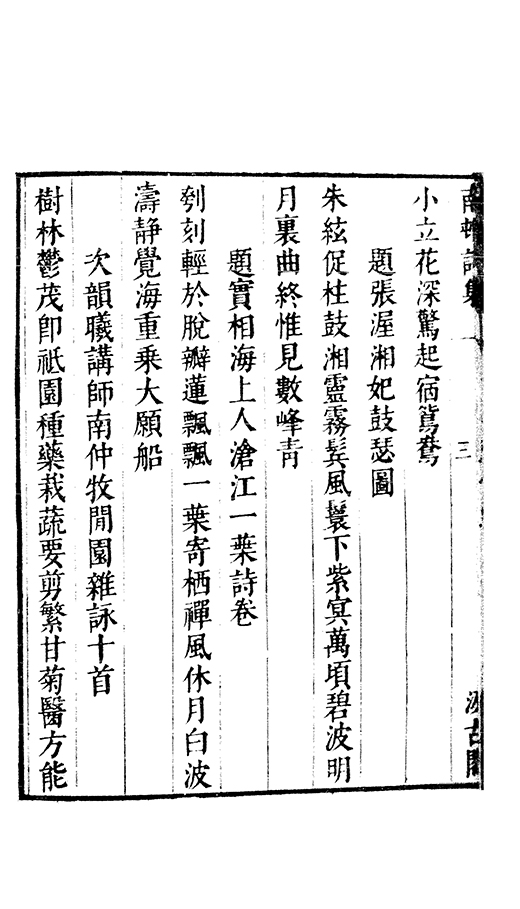 南邨詩集 一 三 汲古閣
小立花深驚起宿鴛鴦
題張渥湘妃鼓瑟圖
朱絃促柱鼓湘靈霧鬢風鬟下紫冥萬頃碧波明
月裏曲終惟見數峰青
題實相海上人滄江一葉詩卷
刳刻輕於脫瓣蓮飄飄一葉寄栖禪風休月白波
濤靜覺海重乘大願船
次韻曦講師南仲牧閒園雜詠十首
樹林鬱茂卽祇園種藥栽蔬要剪繁甘菊醫方能